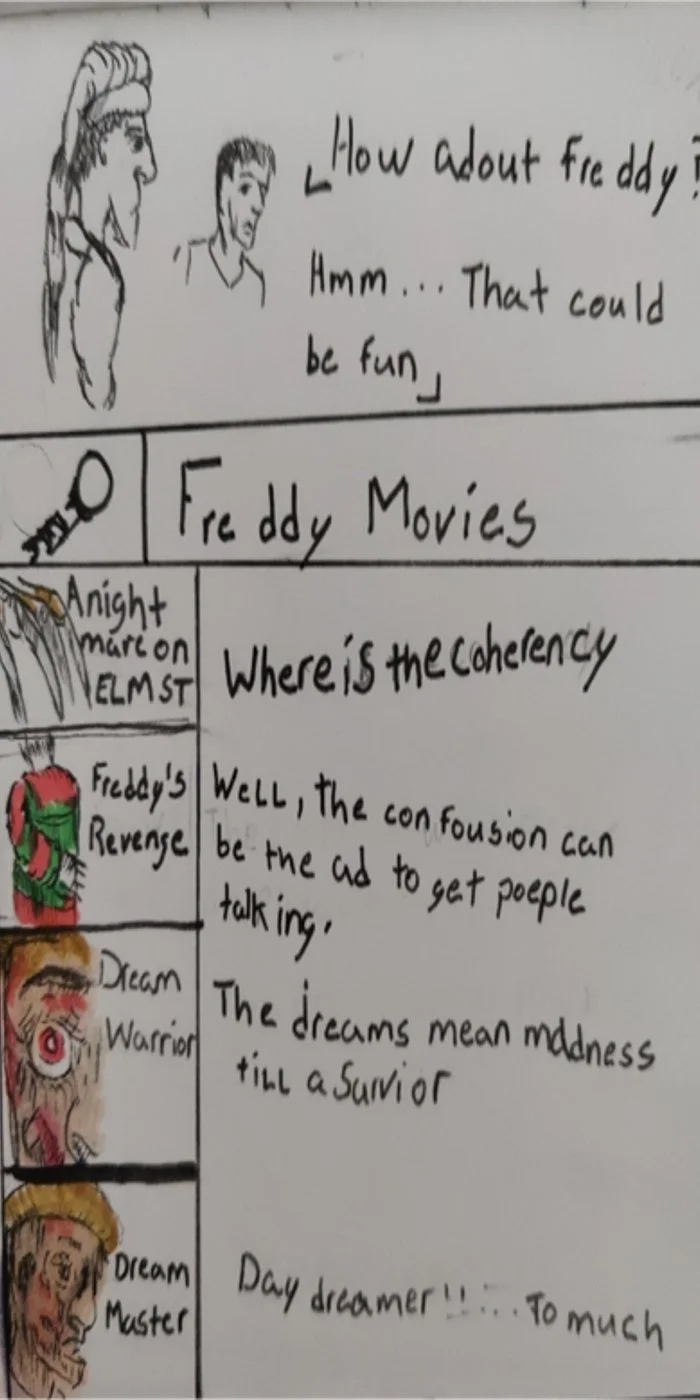 「How adout freddy?
Hmm... That could
be fun」
Freddy Movies
A night
mare on
ELM ST
Where is the coherency
Freddy's
Revenge
Well, the confousion can
be the ad to get poeple
talking.
Dream
Warrior
The dreams mean madness
till a Survior
Dream
Master
Day dreamer!!... To much